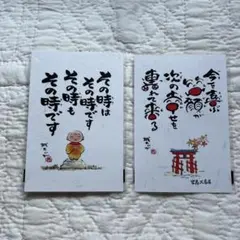 その時は
その時です
その時も
その時です
今を喜ぶ
笑顔が
次の幸せを
連れて来る